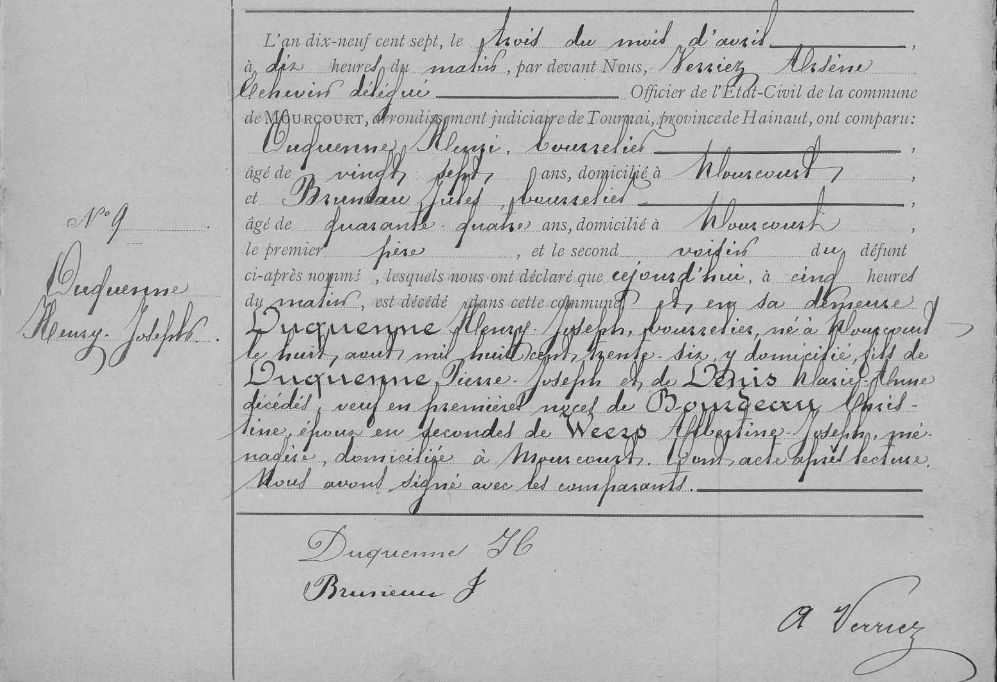 L'an dix-neuf cent sept, le trois du mois d'avril,
à dix heures du matin, par devant Nous, Verriez Arsène
Echevin délégué Officier de l'Etat-Civil de la commune
de MOURCOURT, arrondissement judiciaire de Tournai, province de Hainaut, ont comparu:
Duquenne Henri, bourrelier,
âgé de vingt sept ans, domicilié à Mourcourt,
et Bruneau Jules, bourrelier,
âgé de quarante-quatre ans, domicilié à Mourcourt,
le premier père, et le second voisin du défunt
ci-après nommé, lesquels nous ont déclaré que cejourd'hui, à cinq heures
du matin, est décédé dans cette commune et en sa demeure
Duquenne Henry-Joseph, bourrelier, né à Mourcourt
le huit avout mil huit cent trente-six, y domicilié, fils de
Duquenne Pierre-Joseph et de Denis Marie-Anne
décédés, veuf en premières noces de Bourgeau Chris-
tine, époux en secondes de Weers Albertine-Joseph, mé-
nagère, domiciliée à Mourcourt. Dont acte après lecture.
Nous avons signé avec les comparants.
N° 9
Duquenne
Henry-Joseph.
Duquenne H
Bruneau J
A Verriez